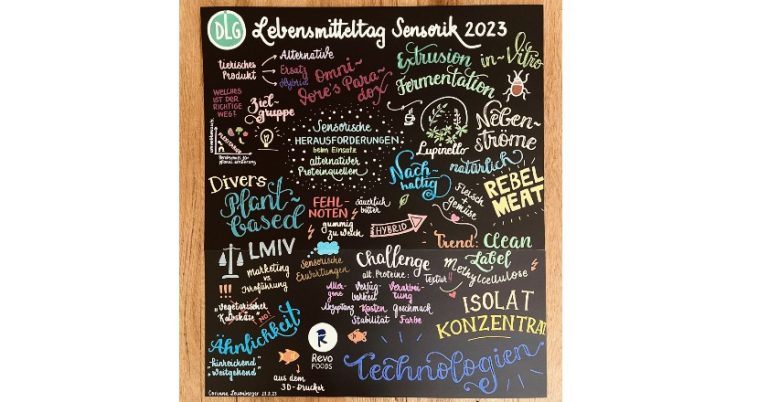 DLG Lebensmitteltag Sensorik 2023
tierisches
Produkt
Alternative
Ersatz
Hybrid
Omni-
vore's Para-
dox
Extrusion in-Vitro
Fermentation
WELCHES
IST DER
RICHTIGE
WEG?
Ziel-
gruppe
Sensorische
HERAUSFORDERUNGEN
beim Einsatz
alternativer
Proteinquellen
Lupinello
Neben-
ströme
natürlich
Nach-
haltig
Fleisch
+
Gemüse
REBEL
MEAT
Divers
Plant-
based
FEHL-
NOTEN
säuerlich
bitter
gummig
zu weich
HYBRID
Trend:
Clean
Label
Methylcellulose
LMIV
Marketing
vs.
Irreführung
!!!
Sensorische
Erwartungen
Challenge
alt. Proteine:
Textur!!
Aller-
gene
Verfüg-
barkeit
Verarbei-
tung
Akzeptanz
Kosten
Geschmack
Stabilität
Farbe
"Vegetarischer
Kalbskäse"
NO!
Ähnlichkeit
"hinreichend"
"weitgehend"
ISOLAT
KONZENTRAT
Revo
FOODS
aus dem
3D-Drucker
Technologien